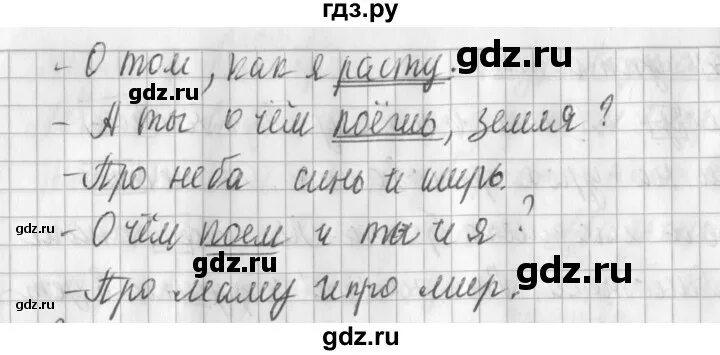 гдз.ру
- О том, как я расту.
gdz.ru gdz.ru
- А ты о чём поёшь, земля?
- Про неба синь и ширь.
gdz.ru
- О чём поем и ты и я?
gdz.ru gdz.ru
- Про маму и про мир.
gdz.ru